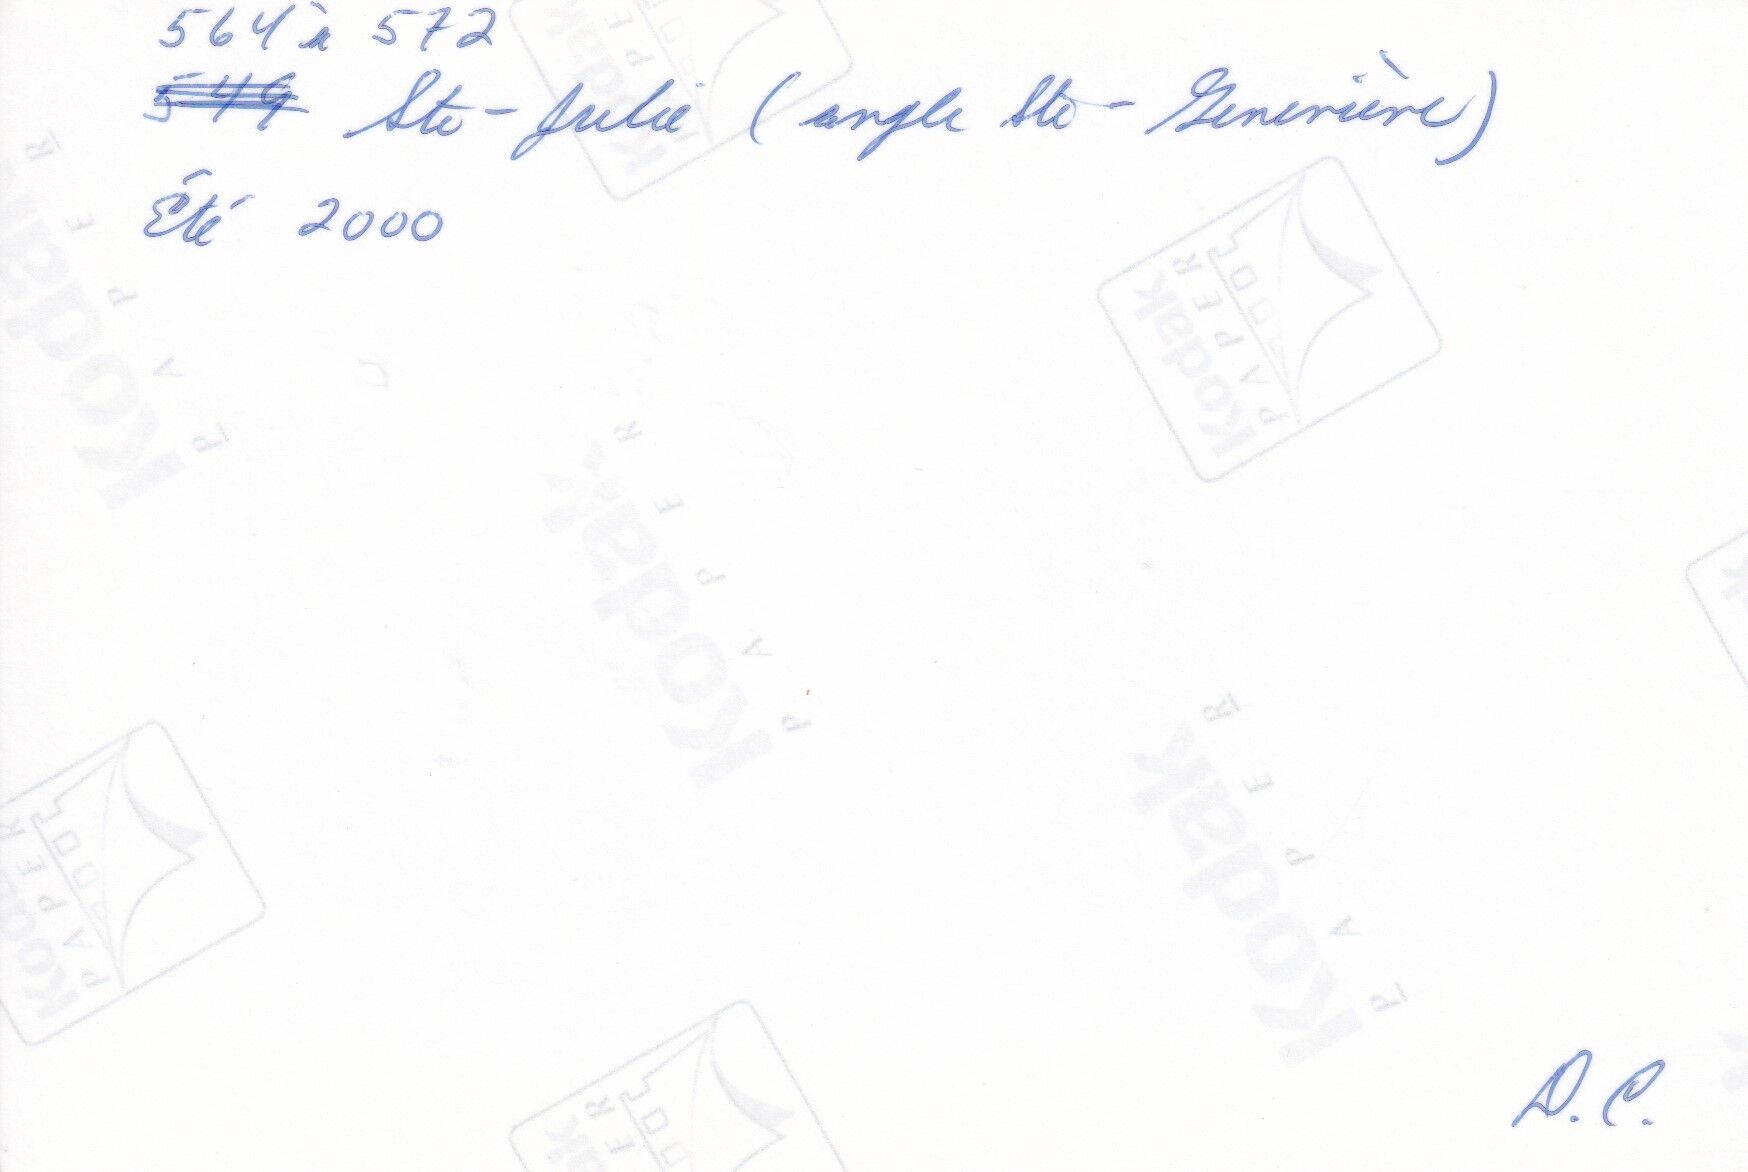 564 à 572
549 Ste-Julie (angle Ste-Geneviève)
Été 2000
D.C.
Kodak
PAPER
Kodak
PAPER
Kodak
PAPER
Kodak
PAPER
Kodak
PAPER
Kodak
PAPER